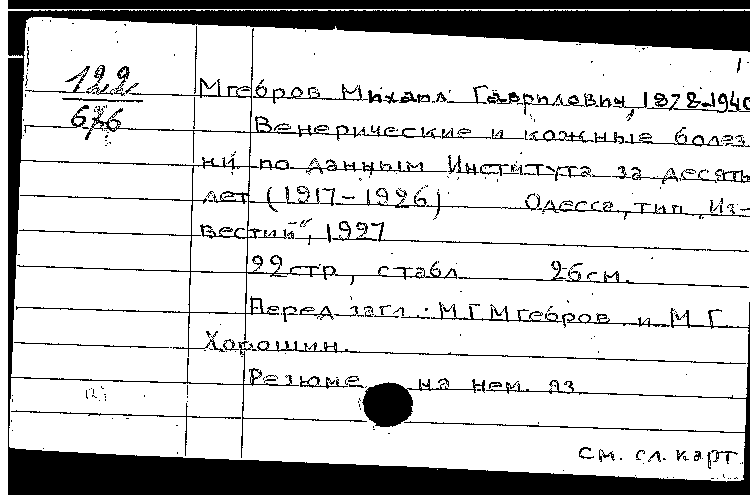 1
122
676
Мгебров Михаил Гаврилович, 1878-1940
Венерические и кожные болез
ни по данным Института за десять
лет (1917-1926) Одесса, тип. „Из-
вестий“, 1927
22стр, с табл 26см.
Перед загл. М.Г.Мгебров и М.Г.
Хорошин.
Резюме на нем. яз
см. сл. карт.